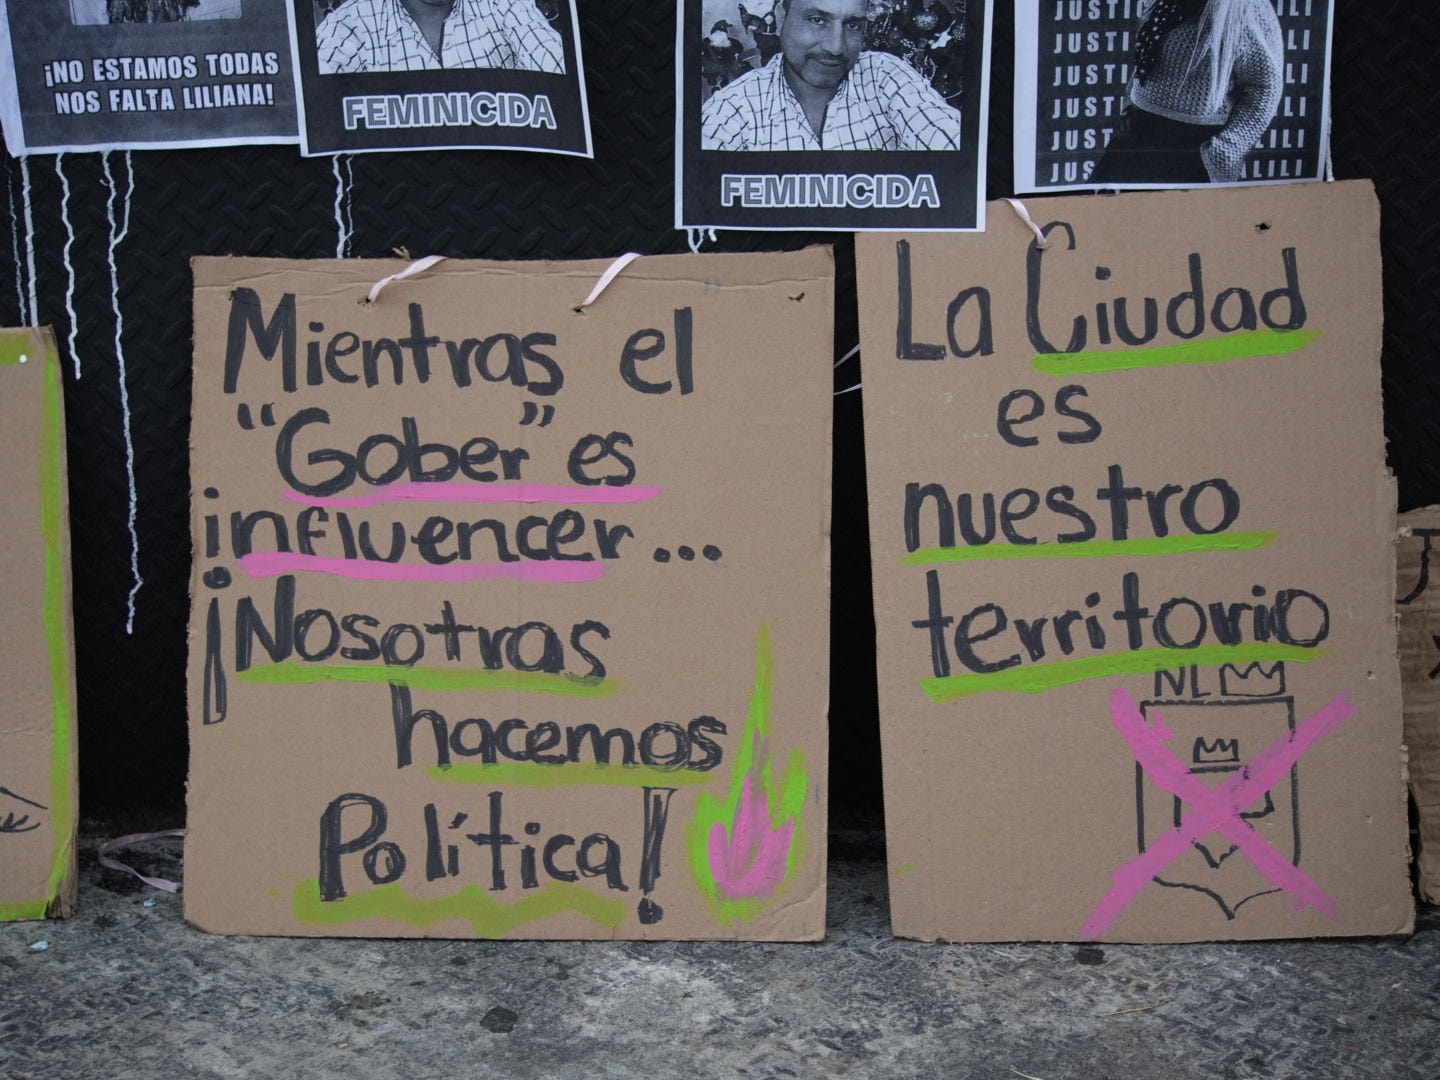 ¡NO ESTAMOS TODAS
NOS FALTA LILIANA!
FEMINICIDA
FEMINICIDA
JUSTIC ILI
JUSTI LI
JUSTI LI
JUSTI LILI
JUST ALILI
JUS ALILI
Mientras el
"Gober" es
influencer...
¡Nosotras
hacemos
Política!
La Ciudad
es
nuestro
territorio
NL